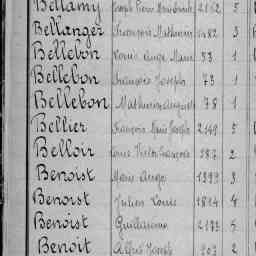 Bellamy Joseph Pierre 2152 5
Bellanger François Mathurin 1482 3
Bellebon Louis Ange Marie 53 1
Bellebon François Joseph 73 1
Bellebon Mathurin Auguste 78 1
Bellier François Marie Joseph 2149 5
Belloir Louis Victor François 587 2
Benoist Marie Ange 1333 3
Benoist Julien Louis 1814 4
Benoist Guillaume 2173 5
Benoit Alfred Joseph 903 2